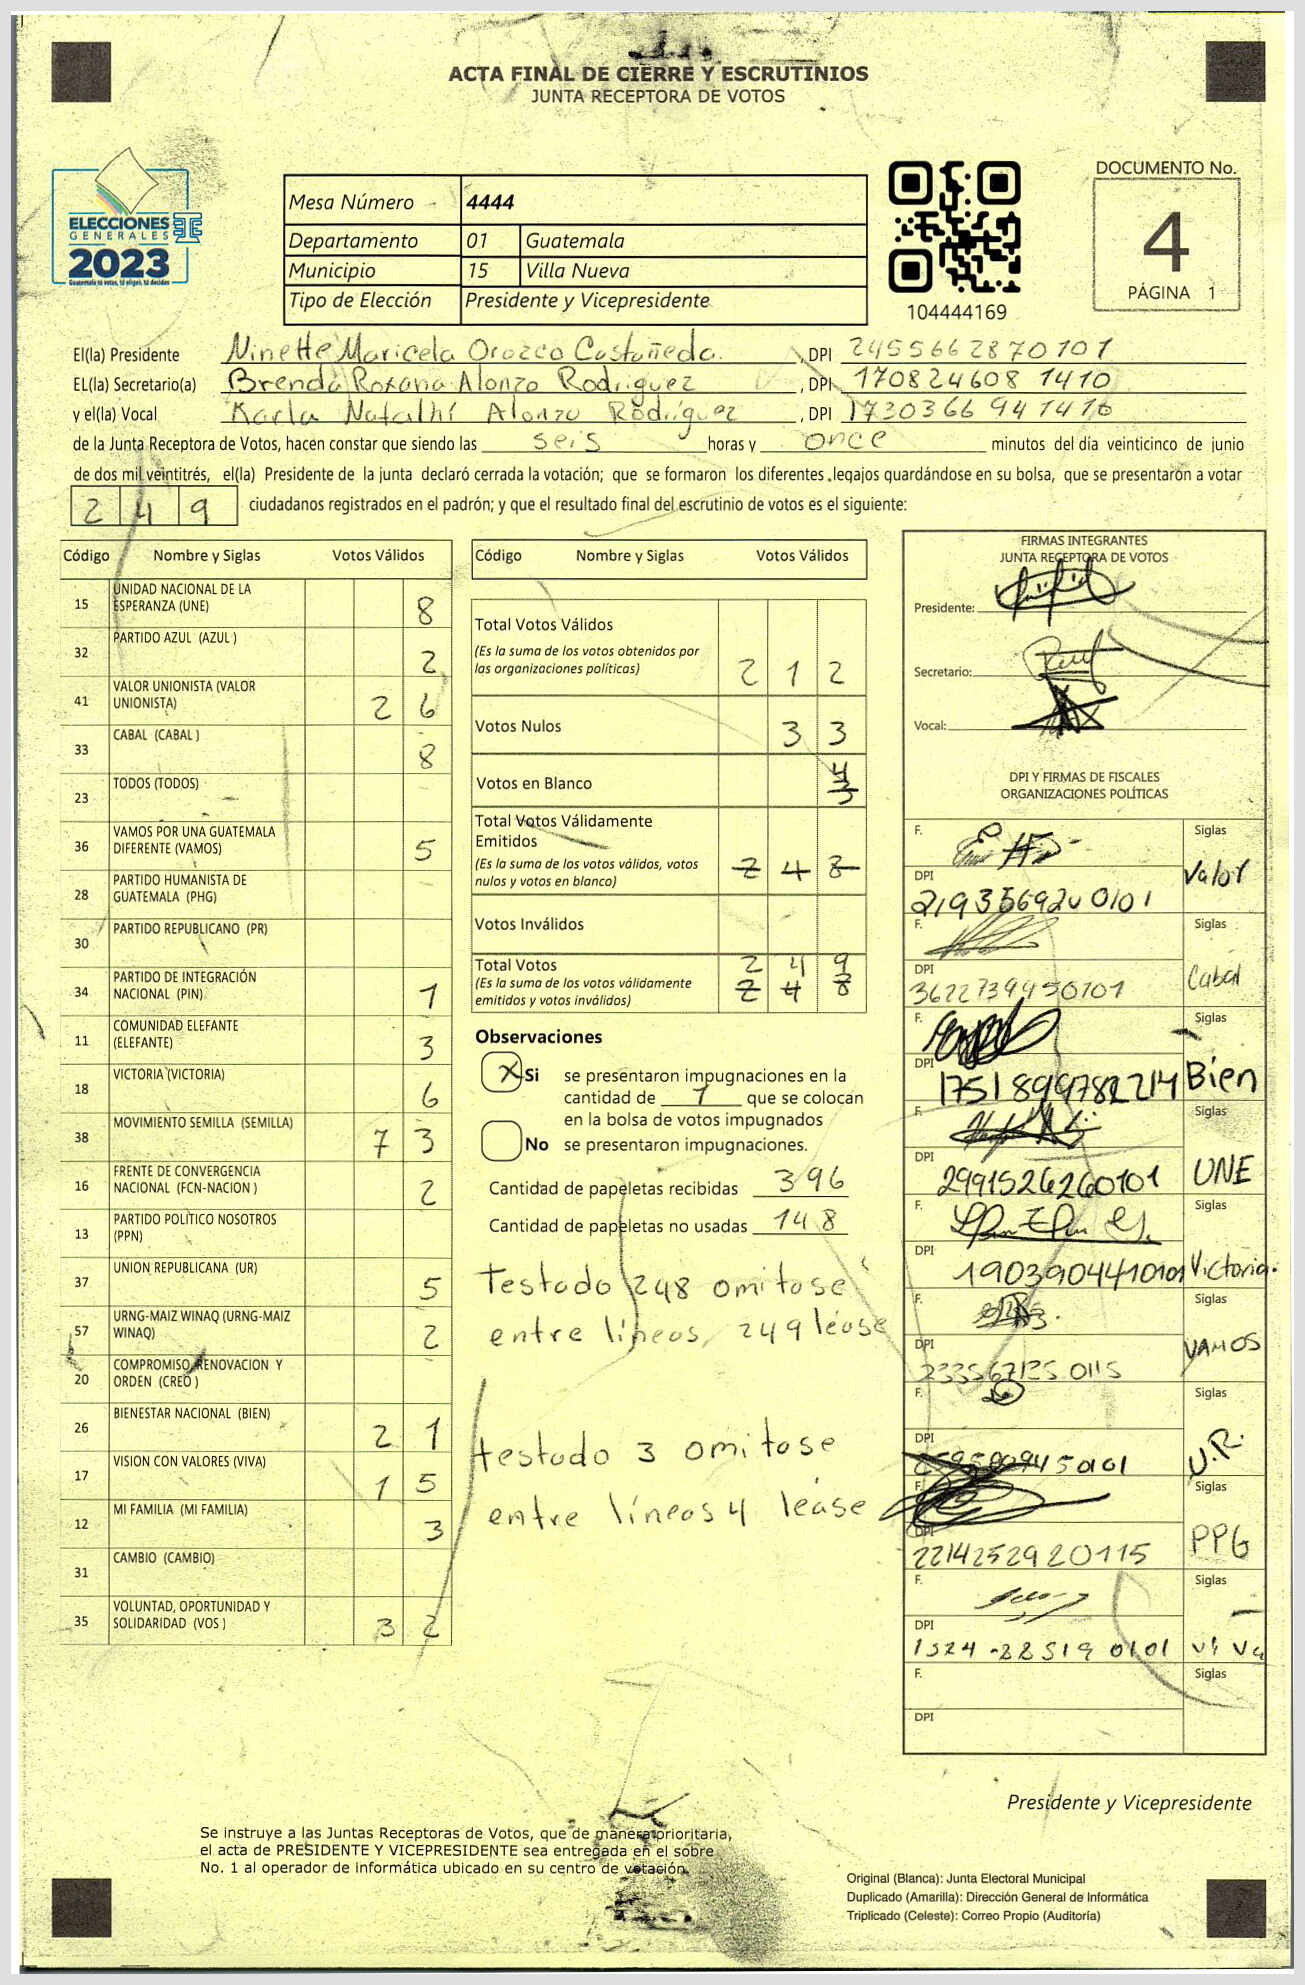 ACTA FINAL DE CIERRE Y ESCRUTINIOS
JUNTA RECEPTORA DE VOTOS
ELECCIONES
GENERALES
2023
Guatemala tú votas, tú eliges, tú decides
Mesa Número 4444
Departamento 01 Guatemala
Municipio 15 Villa Nueva
Tipo de Elección Presidente y Vicepresidente
104444169
DOCUMENTO No.
4
PÁGINA 1
El(la) Presidente Ninette Maricela Orozco Castañeda. , DPI 2455662870101
EL(la) Secretario(a) Brenda Roxana Alonzo Rodriguez , DPI 170824608 1410
y el(la) Vocal Karla Natalhí Alonzo Rodríguez , DPI 1730366941410
de la Junta Receptora de Votos, hacen constar que siendo las seis horas y once minutos del día veinticinco de junio
de dos mil veintitrés, el(la) Presidente de la junta declaró cerrada la votación; que se formaron los diferentes legajos quardándose en su bolsa, que se presentaron a votar
2 4 9 ciudadanos registrados en el padrón; y que el resultado final del escrutinio de votos es el siguiente:
Código Nombre y Siglas Votos Válidos
15 UNIDAD NACIONAL DE LA ESPERANZA (UNE) 8
32 PARTIDO AZUL (AZUL ) 2
41 VALOR UNIONISTA (VALOR UNIONISTA) 2 6
33 CABAL (CABAL ) 8
23 TODOS (TODOS)
36 VAMOS POR UNA GUATEMALA DIFERENTE (VAMOS) 5
28 PARTIDO HUMANISTA DE GUATEMALA (PHG)
30 PARTIDO REPUBLICANO (PR)
34 PARTIDO DE INTEGRACIÓN NACIONAL (PIN) 1
11 COMUNIDAD ELEFANTE (ELEFANTE) 3
18 VICTORIA (VICTORIA) 6
38 MOVIMIENTO SEMILLA (SEMILLA) 7 3
16 FRENTE DE CONVERGENCIA NACIONAL (FCN-NACION ) 2
13 PARTIDO POLÍTICO NOSOTROS (PPN)
37 UNION REPUBLICANA (UR) 5
57 URNG-MAIZ WINAQ (URNG-MAIZ WINAQ) 2
20 COMPROMISO, RENOVACION Y ORDEN (CREO )
26 BIENESTAR NACIONAL (BIEN) 2 1
17 VISION CON VALORES (VIVA) 1 5
12 MI FAMILIA (MI FAMILIA) 3
31 CAMBIO (CAMBIO)
35 VOLUNTAD, OPORTUNIDAD Y SOLIDARIDAD (VOS ) 3 2
Código Nombre y Siglas Votos Válidos
Total Votos Válidos
(Es la suma de los votos obtenidos por
las organizaciones políticas) 2 1 2
Votos Nulos 3 3
Votos en Blanco 4 3
Total Votos Válidamente
Emitidos
(Es la suma de los votos válidos, votos
nulos y votos en blanco) 2 4 8
Votos Inválidos
Total Votos 2 4 9
(Es la suma de los votos válidamente
emitidos y votos inválidos) 2 4 8
Observaciones
X Si se presentaron impugnaciones en la
cantidad de 1 que se colocan
en la bolsa de votos impugnados
No se presentaron impugnaciones.
Cantidad de papeletas recibidas 396
Cantidad de papeletas no usadas 148
Testado 248 omitase
entre líneas 249 léase
testado 3 omitase
entre líneas 4 léase
FIRMAS INTEGRANTES
JUNTA RECEPTORA DE VOTOS
Presidente:
Secretario:
Vocal:
DPI Y FIRMAS DE FISCALES
ORGANIZACIONES POLÍTICAS
F. Siglas
DPI Valor
F. Siglas
DPI 3622739450101 Cabal
F. Siglas
DPI 1751899782214 Bien
F. Siglas
DPI 2991526260101 UNE
F. Siglas
DPI 1903904410101 Victoria.
F. Siglas
DPI VAMOS
F. Siglas
DPI U.R.
F. Siglas
DPI 2214252920115 PPG
F. Siglas
DPI Viva
F. Siglas
DPI
Presidente y Vicepresidente
Se instruye a las Juntas Receptoras de Votos, que de manera prioritaria,
el acta de PRESIDENTE Y VICEPRESIDENTE sea entregada en el sobre
No. 1 al operador de informática ubicado en su centro de votación.
Original (Blanca): Junta Electoral Municipal
Duplicado (Amarilla): Dirección General de Informática
Triplicado (Celeste): Correo Propio (Auditoría)